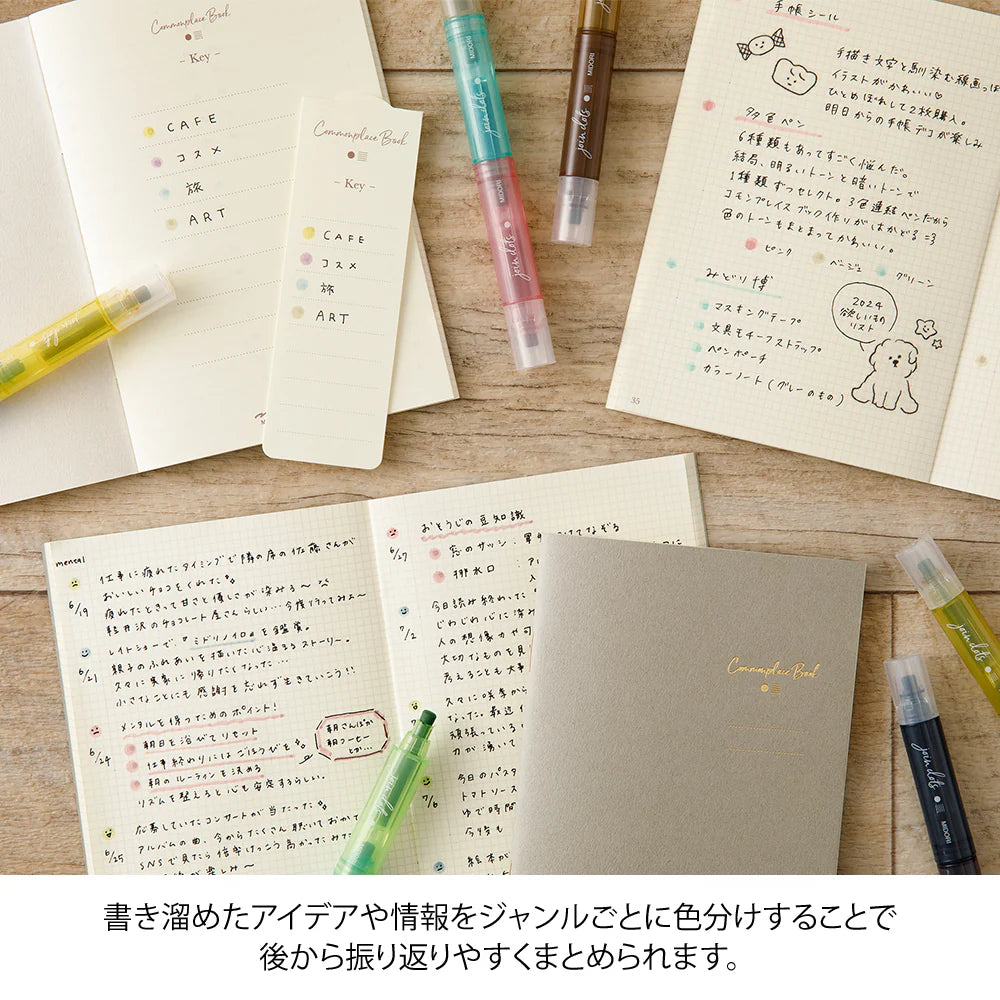 Commonplace Book
– Key –
CAFE
コスメ
旅
ART
Commonplace Book
– Key –
CAFE
コスメ
旅
ART
join dots
MIDORI
join dots
MIDORI
join dots
MIDORI
手帳シール
手描き文字と馴染む線画っぽ
イラストがかわいい♡
ひとめぼれして2枚購入。
明日からの手帳デコが楽しみ
多色ペン
6種類もあってすごく悩んだ。
結局、明るいトーンと暗いトーンで
1種類ずつセレクト。3色連結ペンだから
コモンプレイスブック作りがはかどる=3
色のトーンもまとまってかわいい。
ピンク
ベージュ
グリーン
みどり博
マスキングテープ
文具モチーフストラップ
ペンポーチ
カラーノート(グレーのもの)
2024
欲しいもの
リスト
35
mental
6/19
仕事に疲れたタイミングで隣の席の佐藤さんが
おいしいチョコをくれた
疲れたときって甘さと優しさが染みる〜
軽井沢のチョコレート屋さんらしい…今度行ってみよ〜
6/21
レイトショーで、『ミドリノイロ』を鑑賞。
親子のふれあいを描いた心温まるストーリー。
久々に実家に帰りたくなった…
小さなことにも感謝を忘れず生きていこう!!
6/24
メンタルを保つためのポイント!
朝日を浴びてリセット
仕事終わりにはごほうびを
朝のルーティンを決める
リズムを整えると心も安定するらしい。
朝さんぽか
朝コーヒー
とか…
6/25
応募していたコンサートが当たった
アルバムの曲、今からたくさん聴いておかな
SNSで見たら倍率けっこう高かったみた
が楽しみ〜
おそうじの豆知識
6/27
窓のサッシ
排水口
7/2
今日読み終わった
じわじわ心に染み
人の想像力や可
大切なものを見
考えることも大事
久々に
なった。最近
頑張っている
力が湧いて
7/6
今日のパスタ
トマトソース
ゆで時間
今時も
絵本が
Commonplace Book
join dots
join dots
MIDORI
書き溜めたアイデアや情報をジャンルごとに色分けすることで
後から振り返りやすくまとめられます。